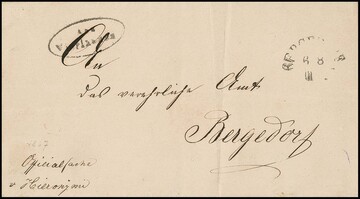 An
das verehrliche Amt
Bergedorf
Officialsache
v Hieronymi